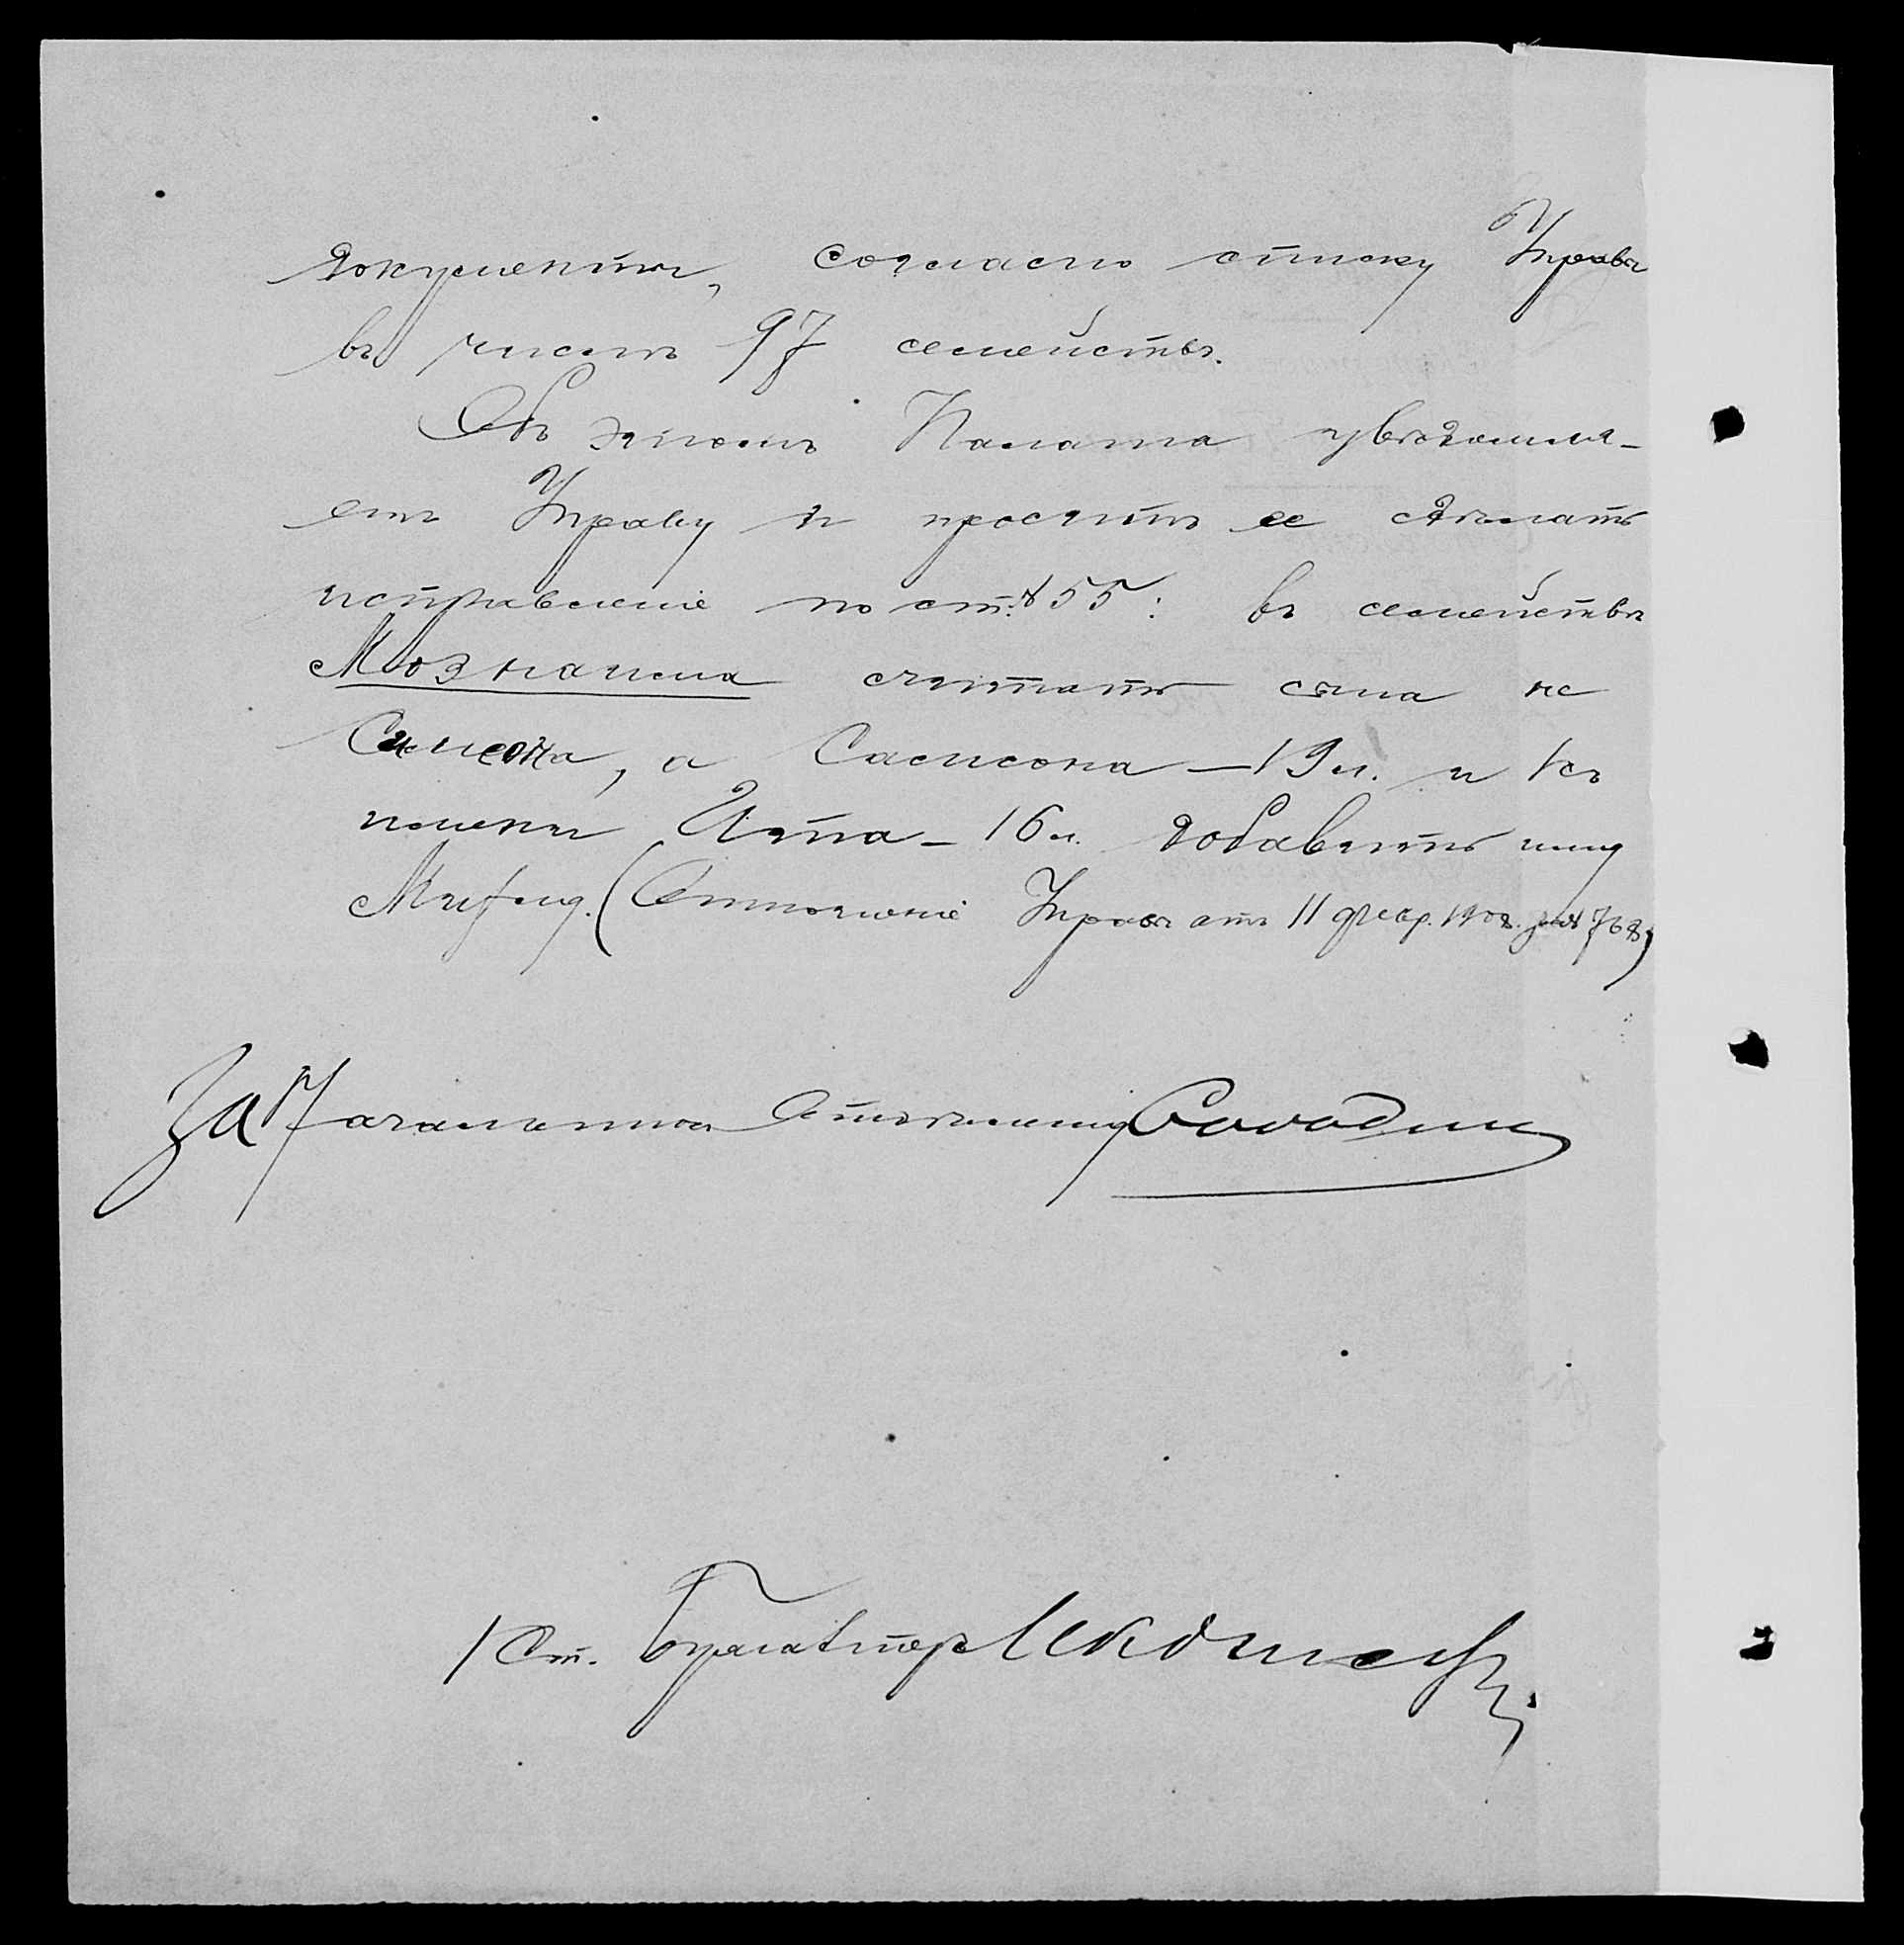 документы, согласно списку Управы
въ числѣ 97 семействъ.
Объ этомъ Палата увѣдомля-
етъ Управу и проситъ ее сдѣлать
исправленіе по ст. № 55: въ семействѣ
Мознаима считать сына не
Симеона, а Самсона – 19 л. и къ
имени Ита – 16 л. добавить имя
(Отношеніе Управы отъ 11 февр. 1908 г. за № 768)
За Начальника Отдѣленія
Ст. Бухгалтеръ